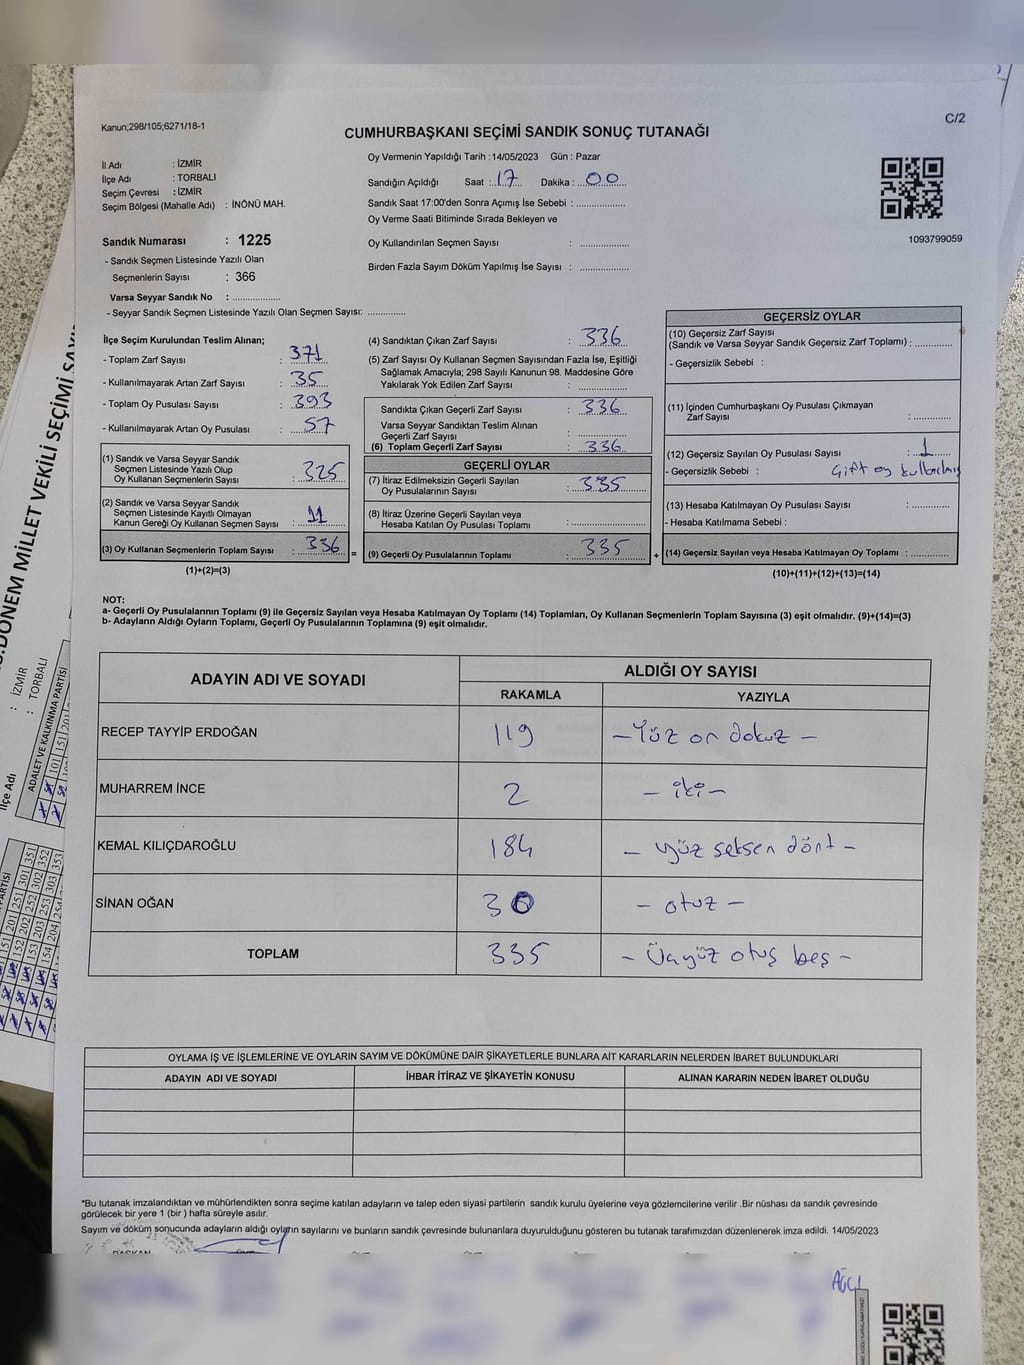 Kanun;298/105;6271/18-1
C/2
CUMHURBAŞKANI SEÇİMİ SANDIK SONUÇ TUTANAĞI
İl Adı : İZMİR
İlçe Adı : TORBALI
Seçim Çevresi : İZMİR
Seçim Bölgesi (Mahalle Adı) : İNÖNÜ MAH.
Oy Vermenin Yapıldığı Tarih : 14/05/2023 Gün : Pazar
Sandığın Açıldığı Saat : 17 Dakika : 00
Sandık Saat 17:00'den Sonra Açımış İse Sebebi : ..................
Oy Verme Saati Bitiminde Sırada Bekleyen ve
Oy Kullandırılan Seçmen Sayısı : ..................
Birden Fazla Sayım Döküm Yapılmış İse Sayısı : ..................
1093799059
Sandık Numarası : 1225
- Sandık Seçmen Listesinde Yazılı Olan
Seçmenlerin Sayısı : 366
Varsa Seyyar Sandık No : ..................
- Seyyar Sandık Seçmen Listesinde Yazılı Olan Seçmen Sayısı: ..............
İlçe Seçim Kurulundan Teslim Alınan;
- Toplam Zarf Sayısı : 371
- Kullanılmayarak Artan Zarf Sayısı : 35
- Toplam Oy Pusulası Sayısı : 393
- Kullanılmayarak Artan Oy Pusulası : 57
(1) Sandık ve Varsa Seyyar Sandık
Seçmen Listesinde Yazılı Olup
Oy Kullanan Seçmenlerin Sayısı : 325
(2) Sandık ve Varsa Seyyar Sandık
Seçmen Listesinde Kayıtlı Olmayan
Kanun Gereği Oy Kullanan Seçmen Sayısı : 11
(3) Oy Kullanan Seçmenlerin Toplam Sayısı : 336 =
(1)+(2)=(3)
(4) Sandıktan Çıkan Zarf Sayısı : 336
(5) Zarf Sayısı Oy Kullanan Seçmen Sayısından Fazla İse, Eşitliği
Sağlamak Amacıyla; 298 Sayılı Kanunun 98. Maddesine Göre
Yakılarak Yok Edilen Zarf Sayısı : ..................
Sandıkta Çıkan Geçerli Zarf Sayısı : 336
Varsa Seyyar Sandıktan Teslim Alınan
Geçerli Zarf Sayısı : ..................
(6) Toplam Geçerli Zarf Sayısı : 336
GEÇERLİ OYLAR
(7) İtiraz Edilmeksizin Geçerli Sayılan
Oy Pusulalarının Sayısı : 335
(8) İtiraz Üzerine Geçerli Sayılan veya
Hesaba Katılan Oy Pusulası Toplamı : ..................
(9) Geçerli Oy Pusulalarının Toplamı : 335 +
GEÇERSİZ OYLAR
(10) Geçersiz Zarf Sayısı
(Sandık ve Varsa Seyyar Sandık Geçersiz Zarf Toplamı) : ..............
- Geçersizlik Sebebi :
(11) İçinden Cumhurbaşkanı Oy Pusulası Çıkmayan
Zarf Sayısı : ..............
(12) Geçersiz Sayılan Oy Pusulası Sayısı : 1
- Geçersizlik Sebebi : Çift oy kullanılmış
(13) Hesaba Katılmayan Oy Pusulası Sayısı : ..............
- Hesaba Katılmama Sebebi :
(14) Geçersiz Sayılan veya Hesaba Katılmayan Oy Toplamı : ..............
(10)+(11)+(12)+(13)=(14)
NOT:
a- Geçerli Oy Pusulalarının Toplamı (9) ile Geçersiz Sayılan veya Hesaba Katılmayan Oy Toplamı (14) Toplamları, Oy Kullanan Seçmenlerin Toplam Sayısına (3) eşit olmalıdır. (9)+(14)=(3)
b- Adayların Aldığı Oyların Toplamı, Geçerli Oy Pusulalarının Toplamına (9) eşit olmalıdır.
ADAYIN ADI VE SOYADI ALDIĞI OY SAYISI
RAKAMLA YAZIYLA
RECEP TAYYİP ERDOĞAN 119 - Yüz on dokuz -
MUHARREM İNCE 2 - iki -
KEMAL KILIÇDAROĞLU 184 - yüz seksen dört -
SİNAN OĞAN 30 - otuz -
TOPLAM 335 - Üçyüz otuş beş -
OYLAMA İŞ VE İŞLEMLERİNE VE OYLARIN SAYIM VE DÖKÜMÜNE DAİR ŞİKAYETLERLE BUNLARA AİT KARARLARIN NELERDEN İBARET BULUNDUKLARI
ADAYIN ADI VE SOYADI İHBAR İTİRAZ VE ŞİKAYETİN KONUSU ALINAN KARARIN NEDEN İBARET OLDUĞU
*Bu tutanak imzalandıktan ve mühürlendikten sonra seçime katılan adayların ve talep eden siyasi partilerin sandık kurulu üyelerine veya gözlemcilerine verilir .Bir nüshası da sandık çevresinde
görülecek bir yere 1 (bir ) hafta süreyle asılır.
Sayım ve döküm sonucunda adayların aldığı oyların sayılarını ve bunların sandık çevresinde bulunanlara duyurulduğunu gösteren bu tutanak tarafımızdan düzenlenerek imza edildi. 14/05/2023
BAŞKAN
AĞCI
DÖNEM MİLLET VEKİLİ SEÇİMİ
: İZMİR
: TORBALI
İlçe Adı
ADALET VE KALKINMA PARTİSİ